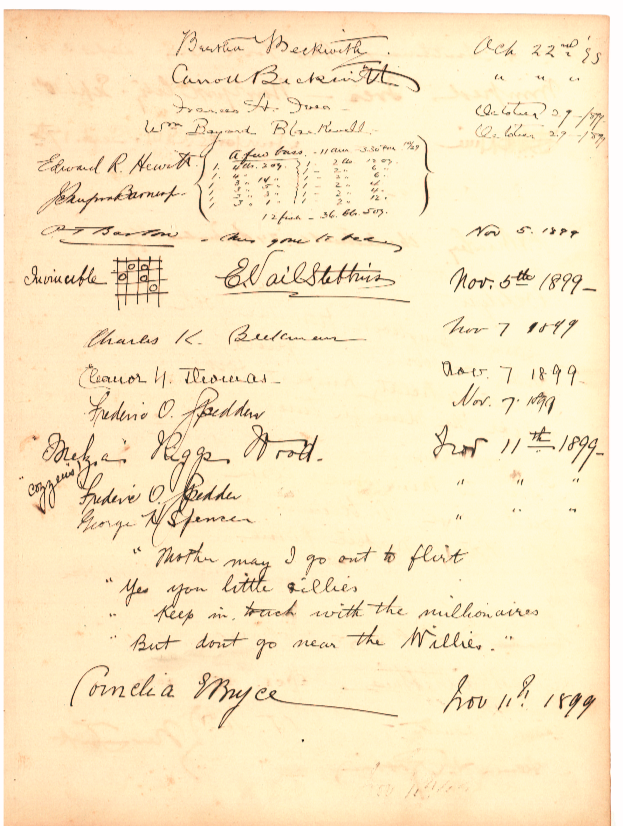 Bertha Beckwith. Oct 22nd '99
Carroll Beckwith " " "
October 29 - 1899
Wm Bayard Blackwell. October 29 - 1899
Edward R. Hewitt
A few bass - 11 am - 3.30 P.M. 10/29
12 fish - 36. lbs. 5 oz.
Barton - has gone to bed Nov 5. 1899
Invincible E Vail Stebbins Nov. 5th 1899-
Charles K. Beekman Nov 7 1899
Eleanor N. Thomas Nov. 7 1899
Frederic O. Spedden Nov. 7. 1899
"Melza" Riggs Wood. Nov 11th 1899-
"Cozzens"
Frederic O. Spedden " " "
George H Spencer " " "
"Mother may I go out to flirt
"Yes you little sillies
" Keep in touch with the millionaires
" But dont go near the Willies."
Cornelia E Bryce Nov 11th 1899